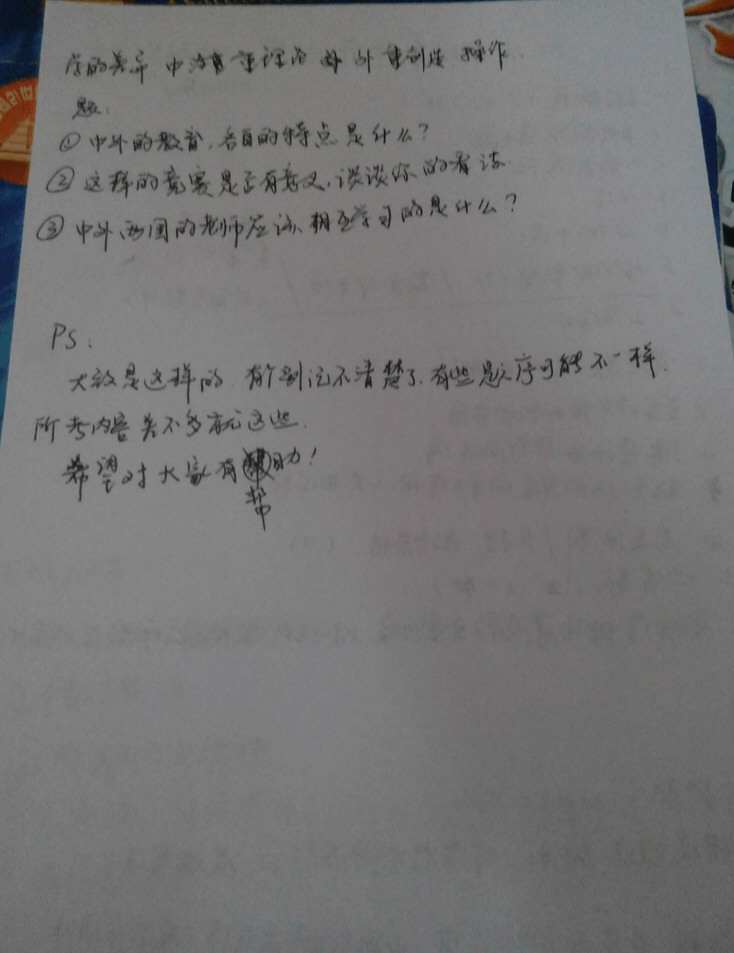 学的差异.中方重理论 外重创造操作.
题:
① 中外的教育,各自的特点是什么?
② 这样的竞赛是否有意义,谈谈你的看法.
③ 中外两国的老师应该相互学习的是什么?
PS:
大致是这样的.有个别记不清楚了.有些题序可能不一样.
所考内容差不多就这些.
希望对大家有帮助!